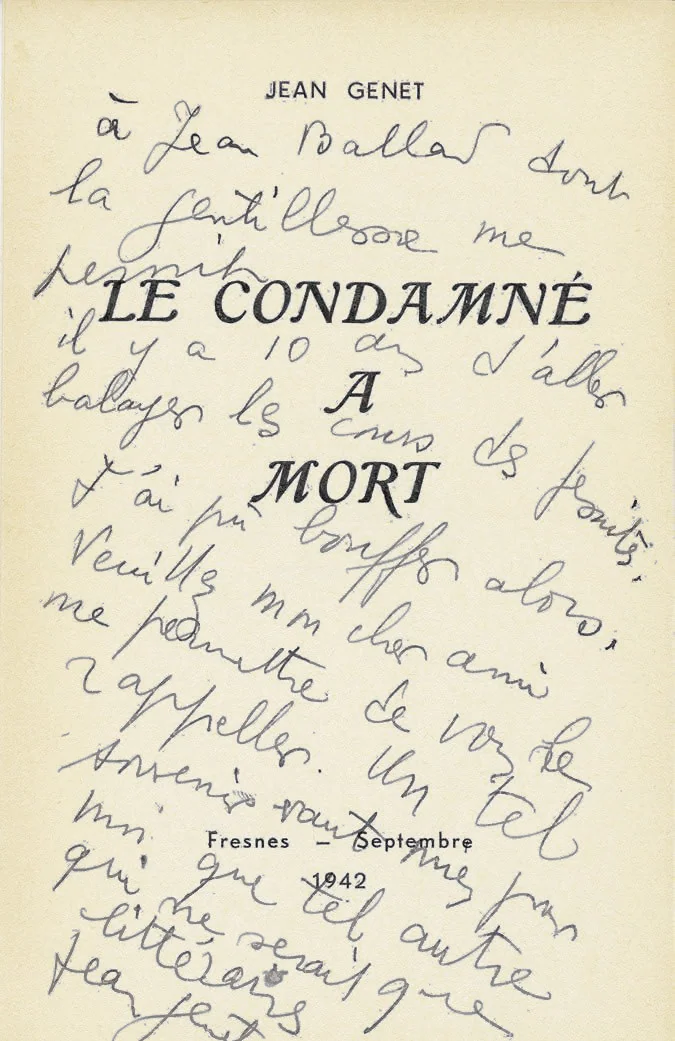 JEAN GENET
à Jean Ballard dont
la gentillesse me
permit
LE CONDAMNÉ
il y a 10 ans d'aller
A
balayer les cours des jesuites.
MORT
J'ai pu bouffer alors.
Veuillez mon cher ami
me permettre de vous le
rappeller. Un tel
souvenir vaut mieux pour
Fresnes – Septembre
moi que tel autre
1942
qui ne serait que
littéraire
Jean Genet